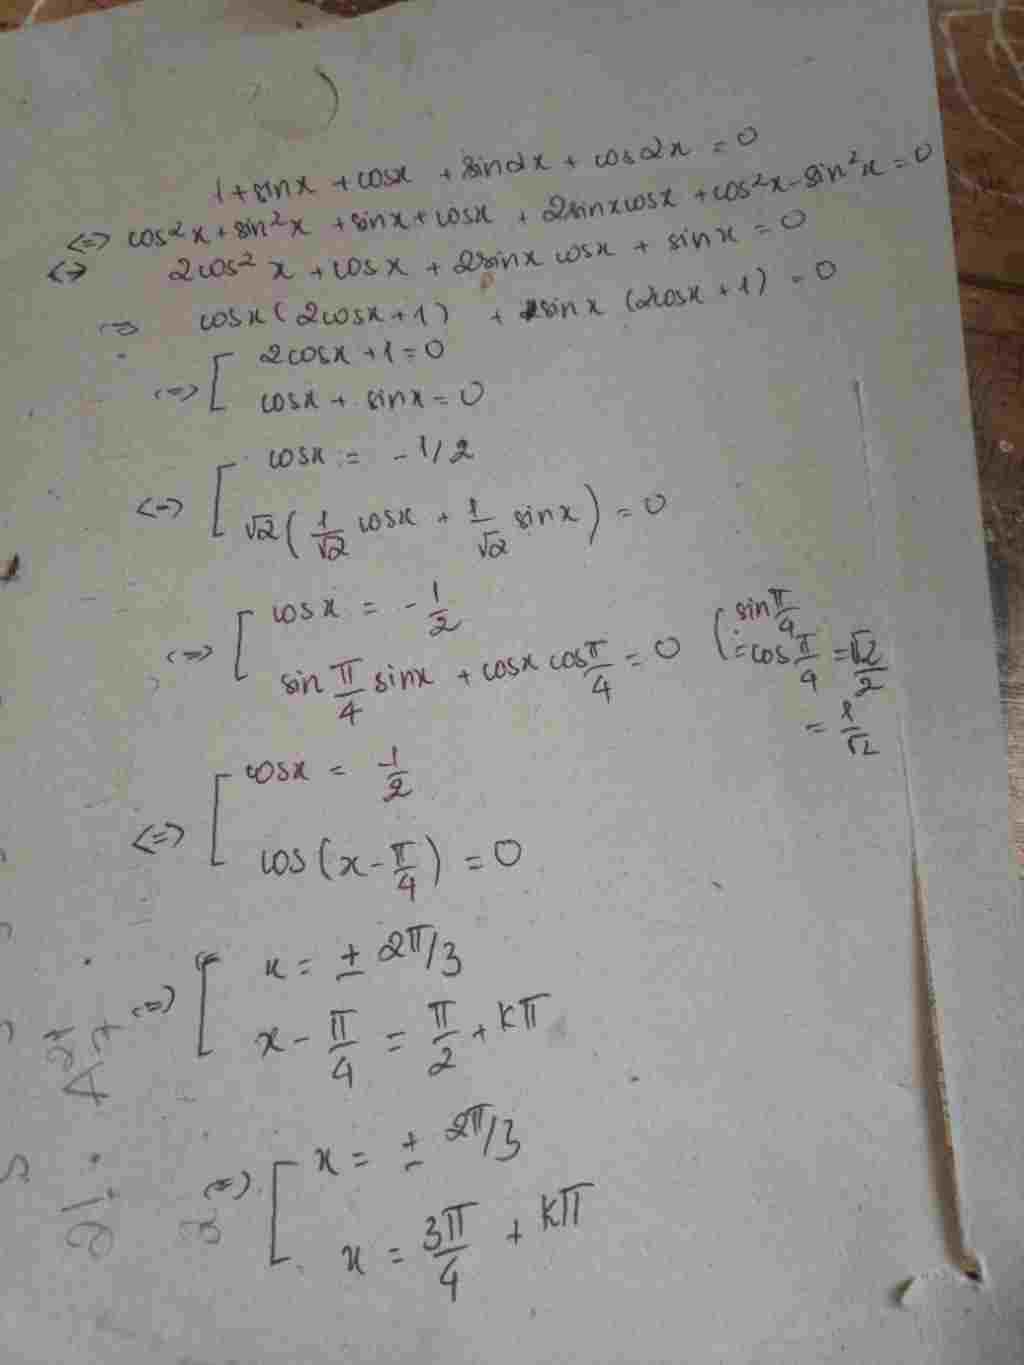 1 + sinx + cosx + sin2x + cos2x = 0
<=> cos²x + sin²x + sinx + cosx + 2sinxcosx + cos²x - sin²x = 0
<=> 2cos²x + cosx + 2sinx cosx + sinx = 0
=> cosx(2cosx+1) + sinx (2cosx+1) = 0
<=> [ 2cosx + 1 = 0
cosx + sinx = 0
<=> [ cosx = -1/2
√2(1/√2 cosx + 1/√2 sinx) = 0
<=> [ cosx = -1/2
sin π/4 sinx + cosx cos π/4 = 0 ( sin π/4 = cos π/4 = √2/2
= 1/√2
<=> [ cosx = -1/2
cos(x - π/4) = 0
<=> [ x = ± 2π/3
x - π/4 = π/2 + kπ
<=> [ x = ± 2π/3
x = 3π/4 + kπ